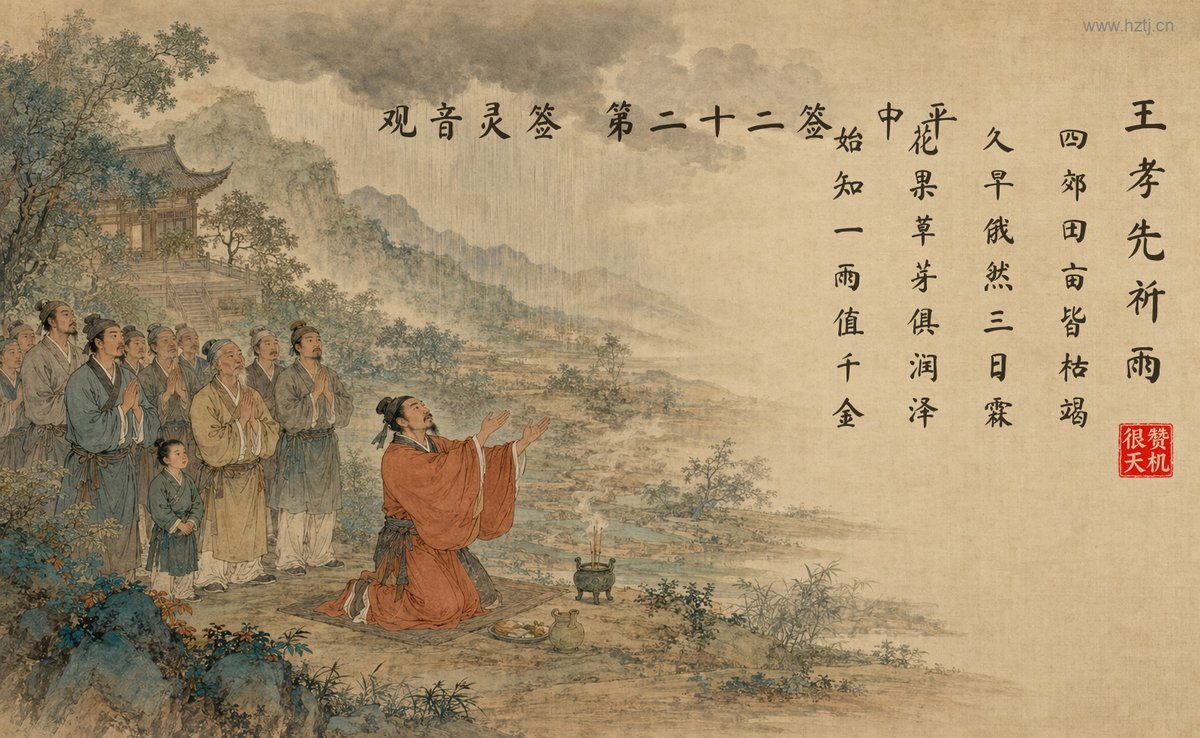 www.hztj.cn
观音灵签 第二十二签 中平
王孝先祈雨
四郊田亩皆枯竭
久早俄然三日霖
花果草芽俱润泽
始知一雨值千金
很赞
天机